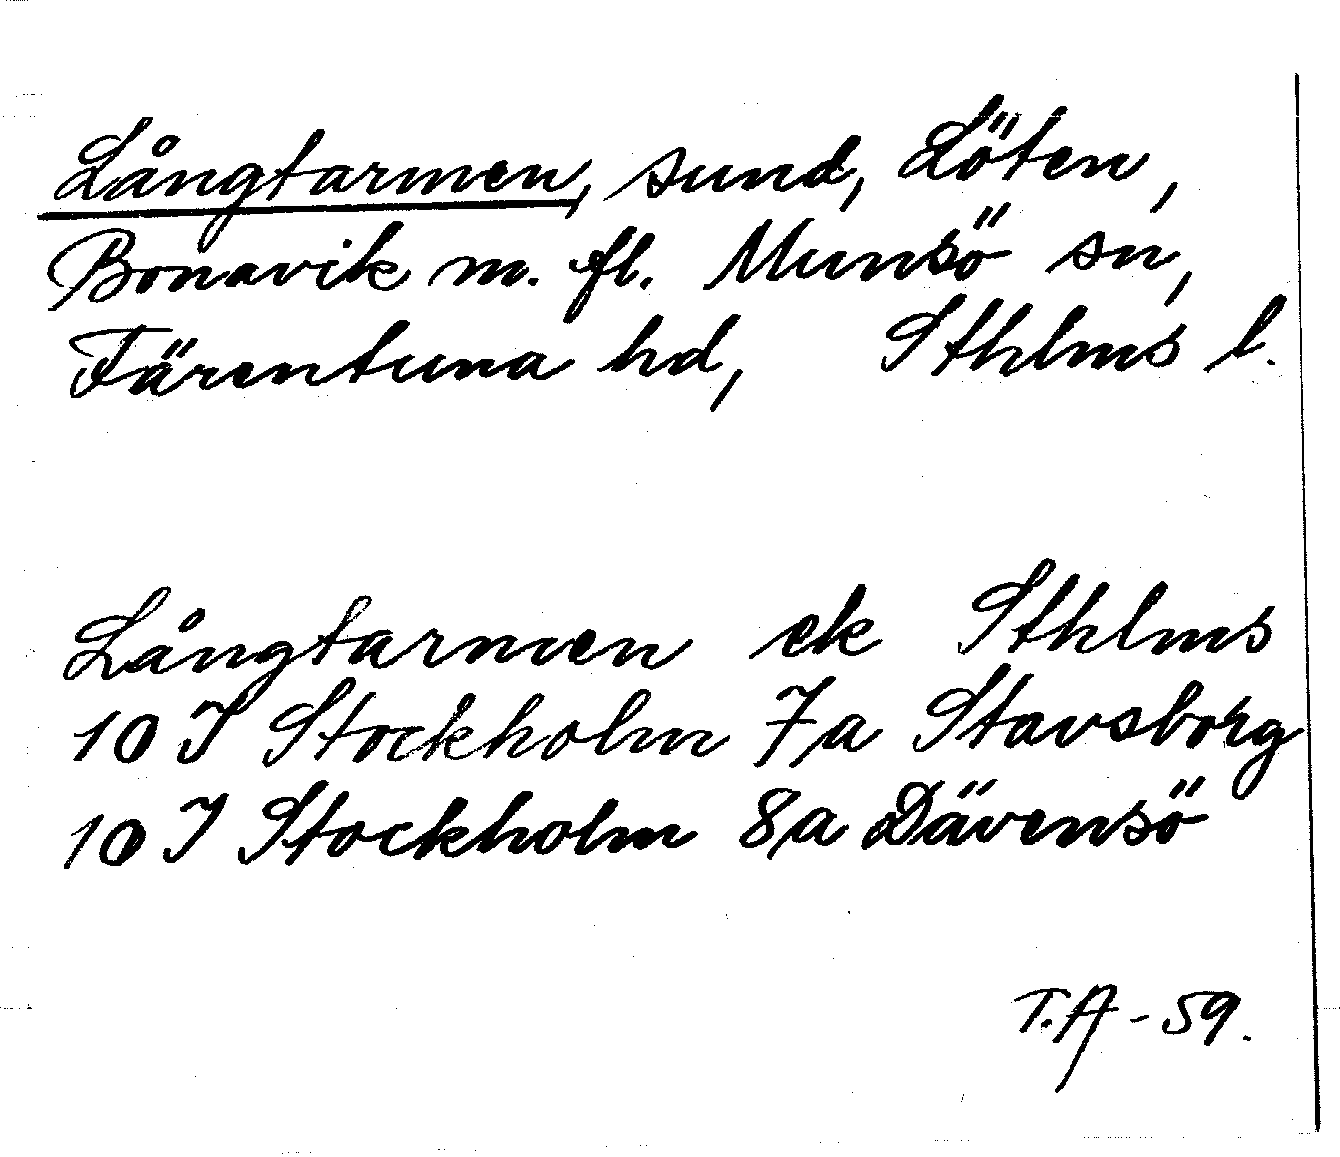 Långtarmen, sund, Löten,
Bonavik m. fl. Munsö sn,
Färentuna hd, Sthlms l.
Långtarmen ek Sthlms
10 I Stockholm 7a Stavsborg
10 I Stockholm 8a Dävensö
T.A - 59.